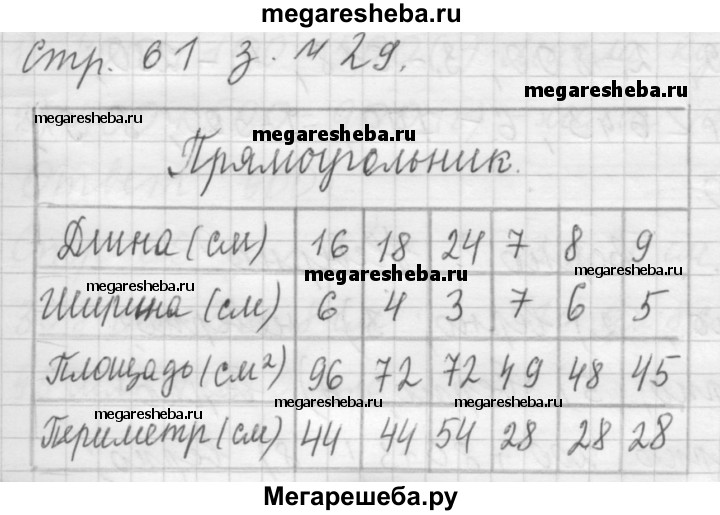 megaresheba.ru
Стр. 61 з. № 29.
megaresheba.ru
megaresheba.ru
megaresheba.ru
Прямоугольник.
Длина (см) 16 18 24 7 8 9
megaresheba.ru
megaresheba.ru
megaresheba.ru
Ширина (см) 6 4 3 7 6 5
Площадь (см²) 96 72 72 49 48 45
megaresheba.ru
megaresheba.ru
megaresheba.ru
Периметр (см) 44 44 54 28 28 28
Мегарешеба.ру